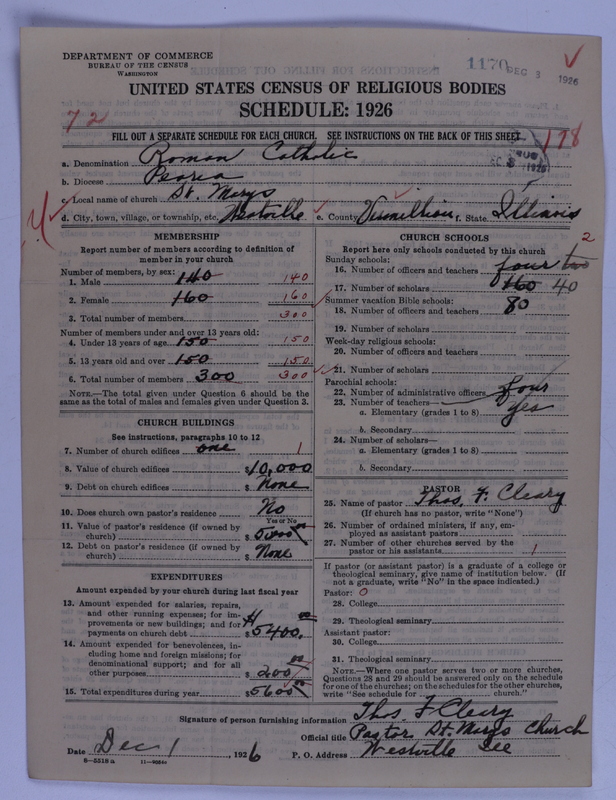 DEPARTMENT OF COMMERCE
BUREAU OF THE CENSUS
WASHINGTON
1170
DEC 3 1926
UNITED STATES CENSUS OF RELIGIOUS BODIES
SCHEDULE: 1926
72
178
FILL OUT A SEPARATE SCHEDULE FOR EACH CHURCH. SEE INSTRUCTIONS ON THE BACK OF THIS SHEET
a. Denomination Roman Catholic
b. Diocese Peoria
c. Local name of church St. Marys
d. City, town, village, or township, etc. Westville e. County Vermillion f. State Illinois
MEMBERSHIP
Report number of members according to definition of member in your church
Number of members, by sex:
1. Male 140 140
2. Female 160 160
3. Total number of members 300
Number of members under and over 13 years old:
4. Under 13 years of age 150 150
5. 13 years old and over 150 150
6. Total number of members 300 300
NOTE.—The total given under Question 6 should be the same as the total of males and females given under Question 3.
CHURCH BUILDINGS
See instructions, paragraphs 10 to 12
7. Number of church edifices one 1
8. Value of church edifices $10,000
9. Debt on church edifices $ None
10. Does church own pastor's residence No
Yes or No
11. Value of pastor's residence (if owned by church) $5,000 00
12. Debt on pastor's residence (if owned by church) $ None
EXPENDITURES
Amount expended by your church during last fiscal year
13. Amount expended for salaries, repairs, and other running expenses; for improvements or new buildings; and for payments on church debt $5400. 00
14. Amount expended for benevolences, including home and foreign missions; for denominational support; and for all other purposes $200 00
15. Total expenditures during year $5600 00
CHURCH SCHOOLS
Report here only schools conducted by this church
Sunday schools:
16. Number of officers and teachers four two 2
17. Number of scholars 160 40
Summer vacation Bible schools:
18. Number of officers and teachers 80
19. Number of scholars
Week-day religious schools:
20. Number of officers and teachers
21. Number of scholars
Parochial schools:
22. Number of administrative officers four
23. Number of teachers—
a. Elementary (grades 1 to 8) yes
b. Secondary
24. Number of scholars—
a. Elementary (grades 1 to 8)
b. Secondary
PASTOR
25. Name of pastor Thos. F. Cleary
(If church has no pastor, write "None")
26. Number of ordained ministers, if any, employed as assistant pastors
27. Number of other churches served by the pastor or his assistants 1
If pastor (or assistant pastor) is a graduate of a college or theological seminary, give name of institution below. (If not a graduate, write "No" in the space indicated.)
Pastor: 0
28. College
29. Theological seminary
Assistant pastor:
30. College
31. Theological seminary
NOTE.—Where one pastor serves two or more churches, Questions 28 and 29 should be answered only on the schedule for one of the churches; on the schedules for the other churches, write "See schedule for church."
Signature of person furnishing information Thos. F Cleary
Official title Pastor St. Marys Church
Date Dec 1, 1926 P. O. Address Westville Ill
8—5518 a